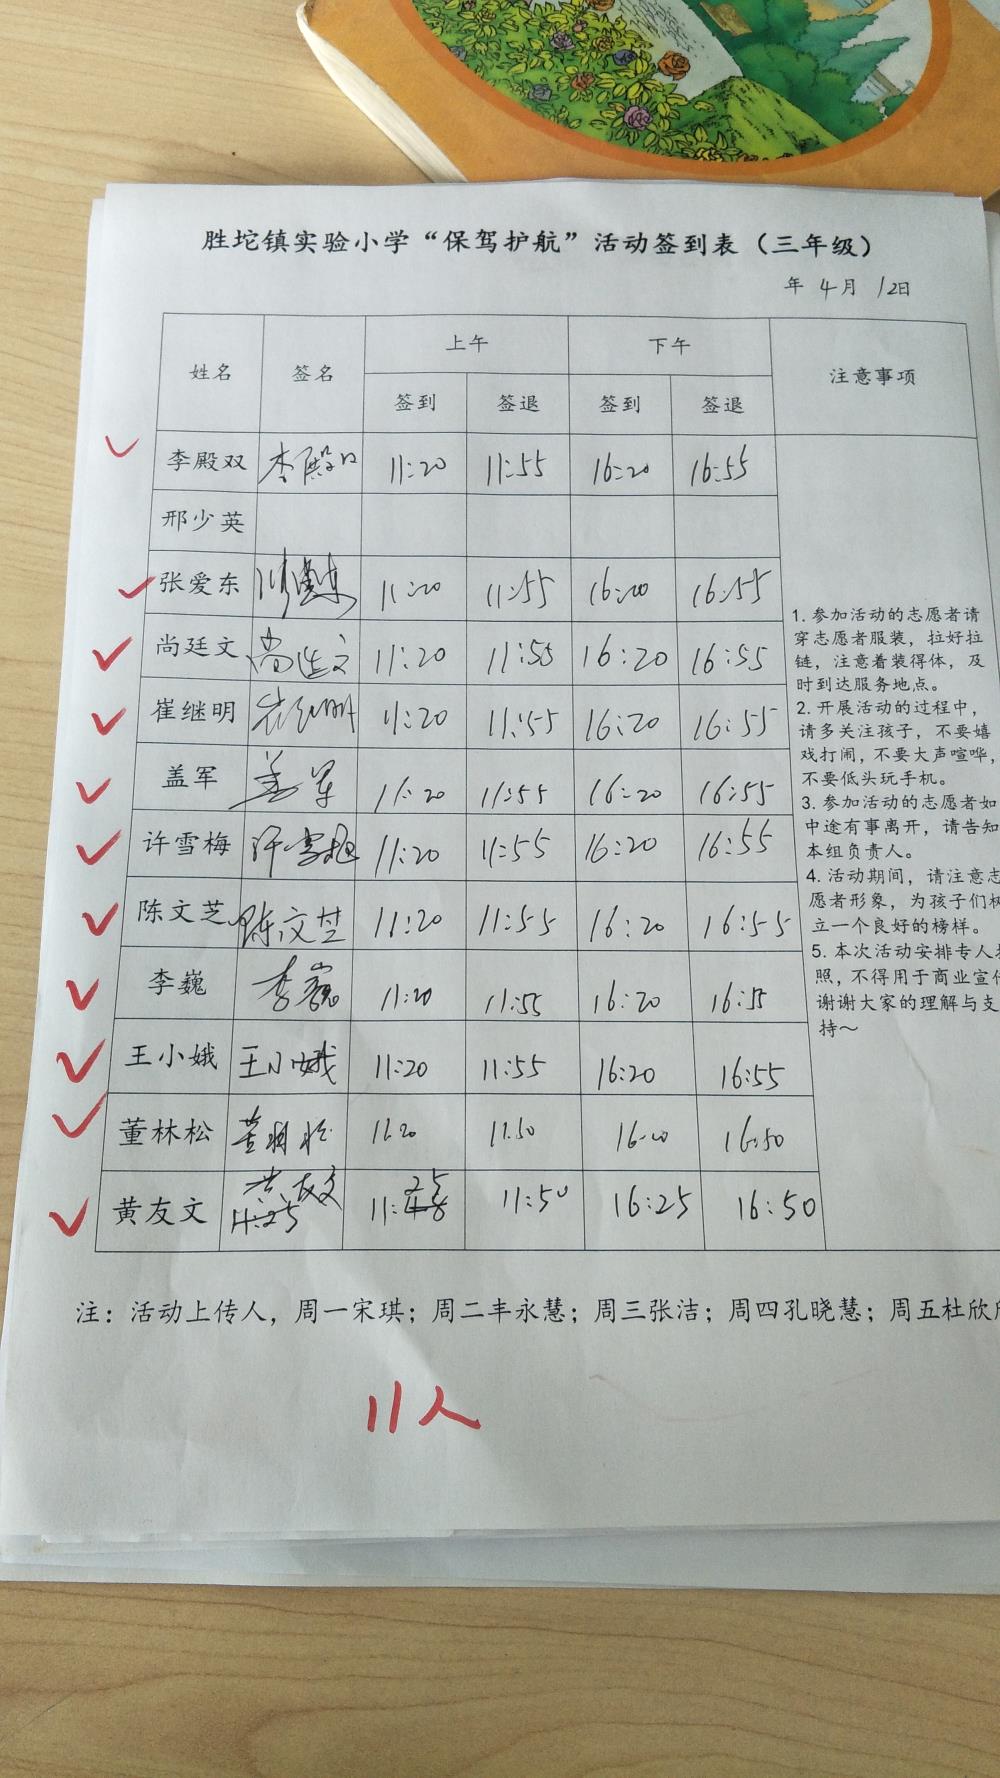 胜坨镇实验小学“保驾护航”活动签到表（三年级）
年 4月 12日
姓名 签名 上午 下午 注意事项
签到 签退 签到 签退
李殿双 李殿双 11:20 11:55 16:20 16:55
邢少英
张爱东 张爱东 11:20 11:55 16:20 16:55
尚廷文 尚廷文 11:20 11:55 16:20 16:55
崔继明 崔继明 11:20 11:55 16:20 16:55
盖军 盖军 11:20 11:55 16:20 16:55
许雪梅 许雪梅 11:20 11:55 16:20 16:55
陈文芝 陈文芝 11:20 11:55 16:20 16:55
李巍 李巍 11:20 11:55 16:20 16:55
王小娥 王小娥 11:20 11:55 16:20 16:55
董林松 董林松 11:20 11:50 16:20 16:50
黄友文 黄友文 11:25 11:25 11:50 16:25 16:50
1. 参加活动的志愿者请
穿志愿者服装，拉好拉
链，注意着装得体，及
时到达服务地点。
2. 开展活动的过程中，
请多关注孩子，不要嬉
戏打闹，不要大声喧哗，
不要低头玩手机。
3. 参加活动的志愿者如
中途有事离开，请告知
本组负责人。
4. 活动期间，请注意志
愿者形象，为孩子们树
立一个良好的榜样。
5. 本次活动安排专人
照，不得用于商业宣传
谢谢大家的理解与支
持～
注：活动上传人，周一宋琪；周二丰永慧；周三张洁；周四孔晓慧；周五杜欣
11人